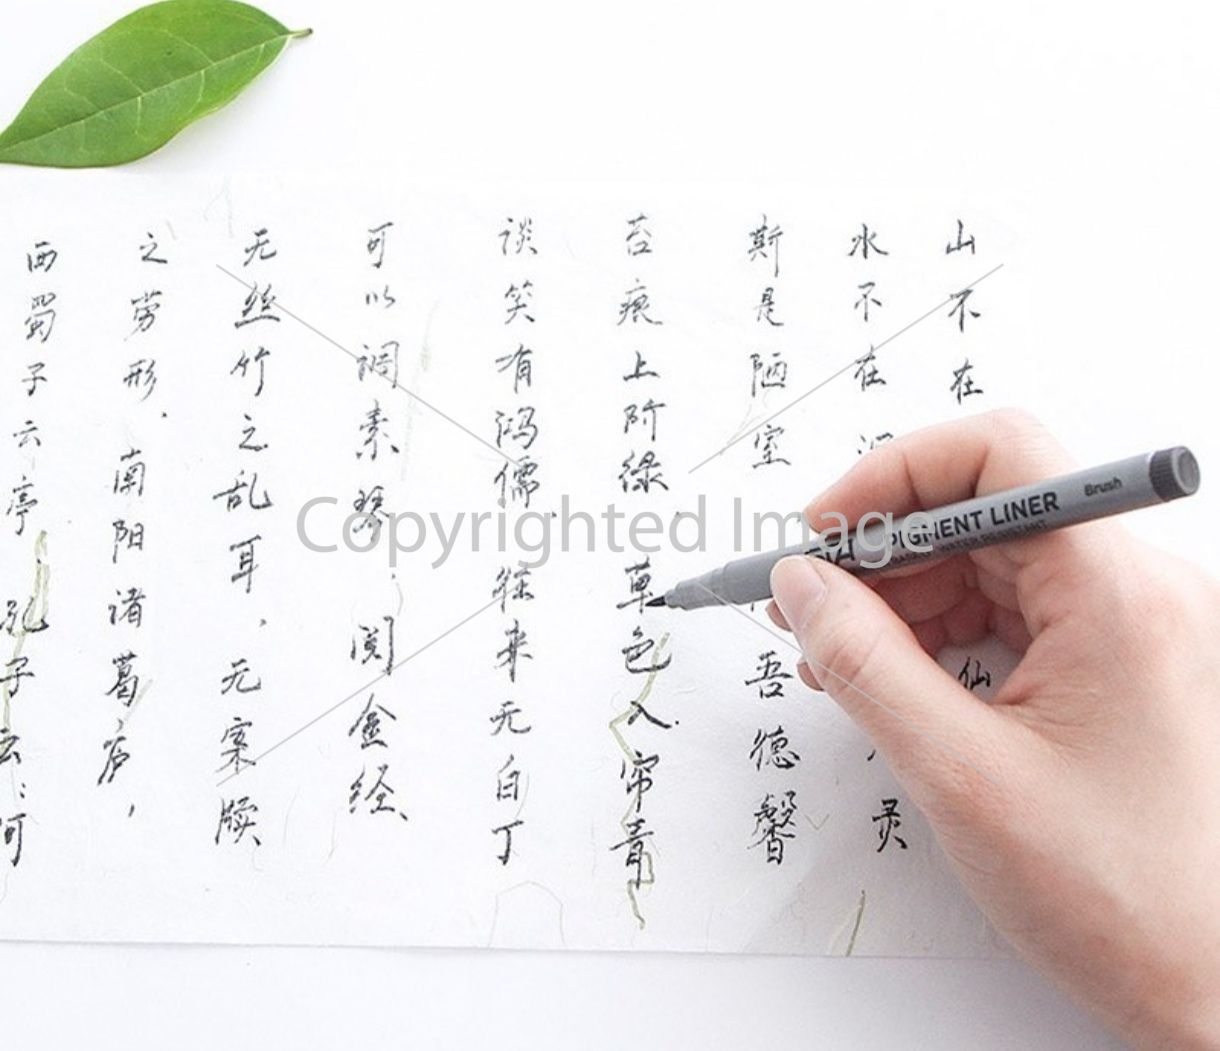 山不在 仙
水不在深 灵
斯是陋室 吾德馨
苔痕上阶绿.草色入.帘青
谈笑有鸿儒.往来无白丁
可以调素琴.阅金经、
无丝竹之乱耳.无案牍
之劳形.南阳诸葛庐,
西蜀子云亭.孔子云:何
Copyrighted Image
PIGMENT LINER
Brush
WATER RESISTANT